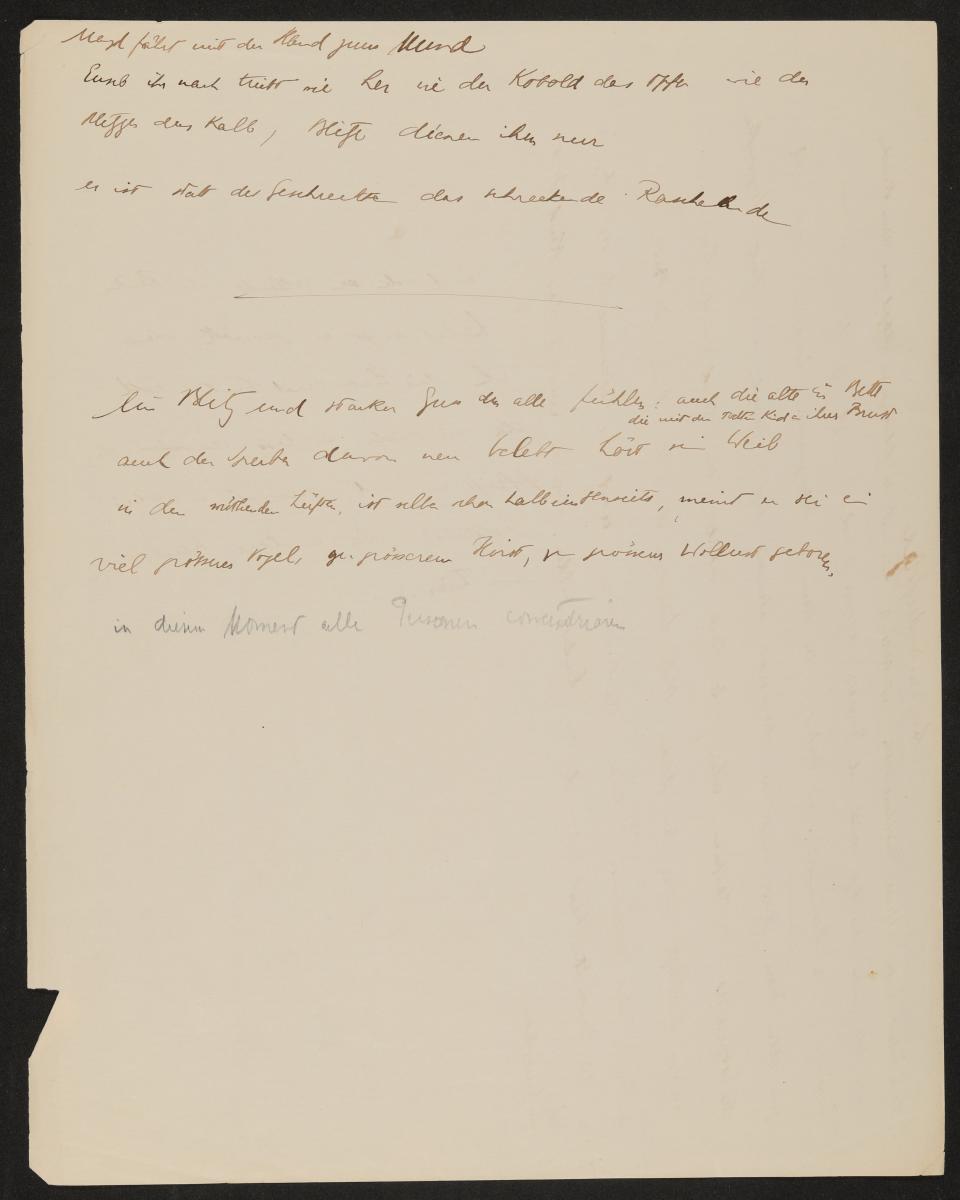 Magd fährt mit der Hand zum Mund
Euseb ihr nach treibt sie her wie der Kobold das Opfer wie der
Metzger das Kalb, Blitze dienen ihm nur
er ist statt der Geschreckten das schreckende Raschelnde
Ein Blitz und starker Guss den alle fühlen: auch die alte im Bett
die mit den Kid an ihrer Brust
auch der Sterbende davon neu belebt hört sein Weib
in den wüthenden Lüften, ist selber schon halb im Jenseits, meint er sei ein
viel grösseres Vogel, zu grösserem Horst, zu grösserer Wollust geboren,
in diesem Moment alle Personen concentrieren